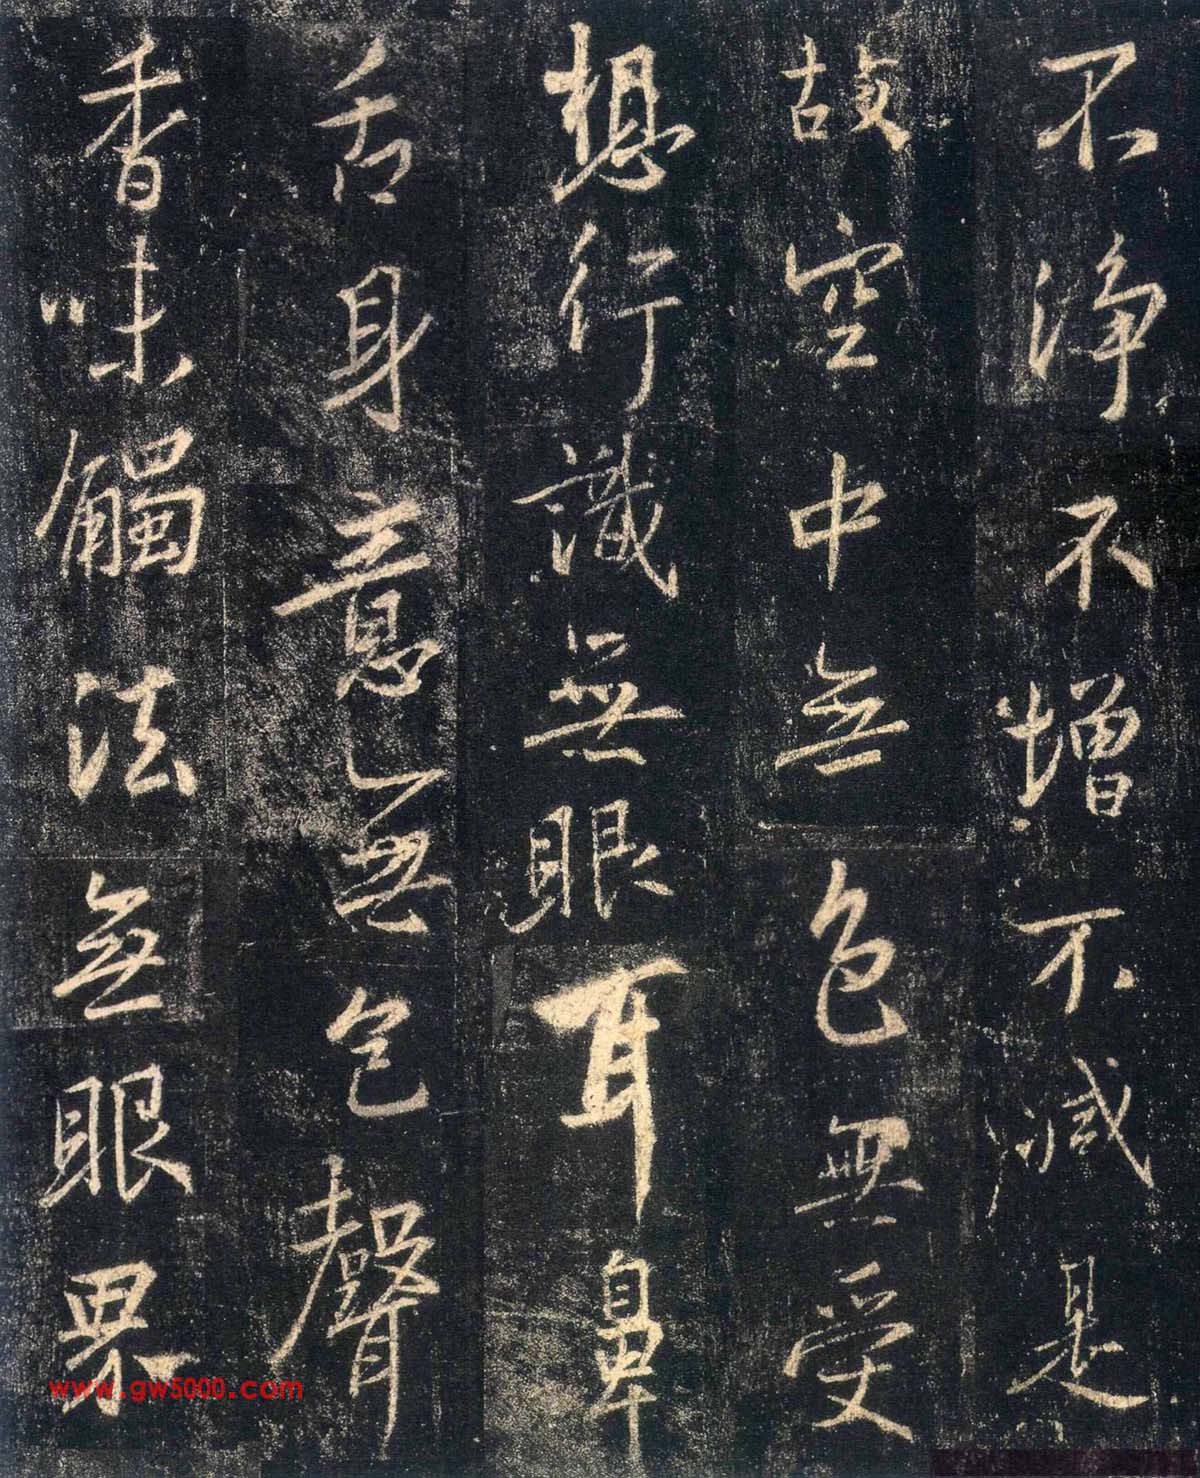 不淨不增不減是
故空中無色無受
想行識無眼耳鼻
舌身意無色聲
香味觸法無眼界
www.gw5000.com